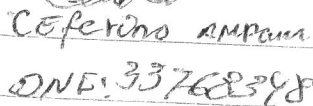 Ceferino Ampam
DNI: 33762348